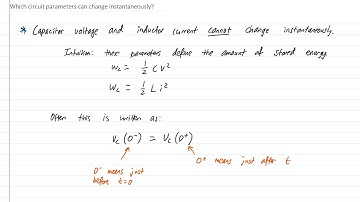 Which circuit parameters can change instantaneously?
* Capacitor voltage and inductor current cannot change instantaneously.
Intuition: these parameters define the amount of stored energy
W_c = 1/2 C v²
W_L = 1/2 L i²
Often this is written as:
V_c (0⁻) = V_c (0⁺)
0⁻ means just before t=0
0⁺ means just after t